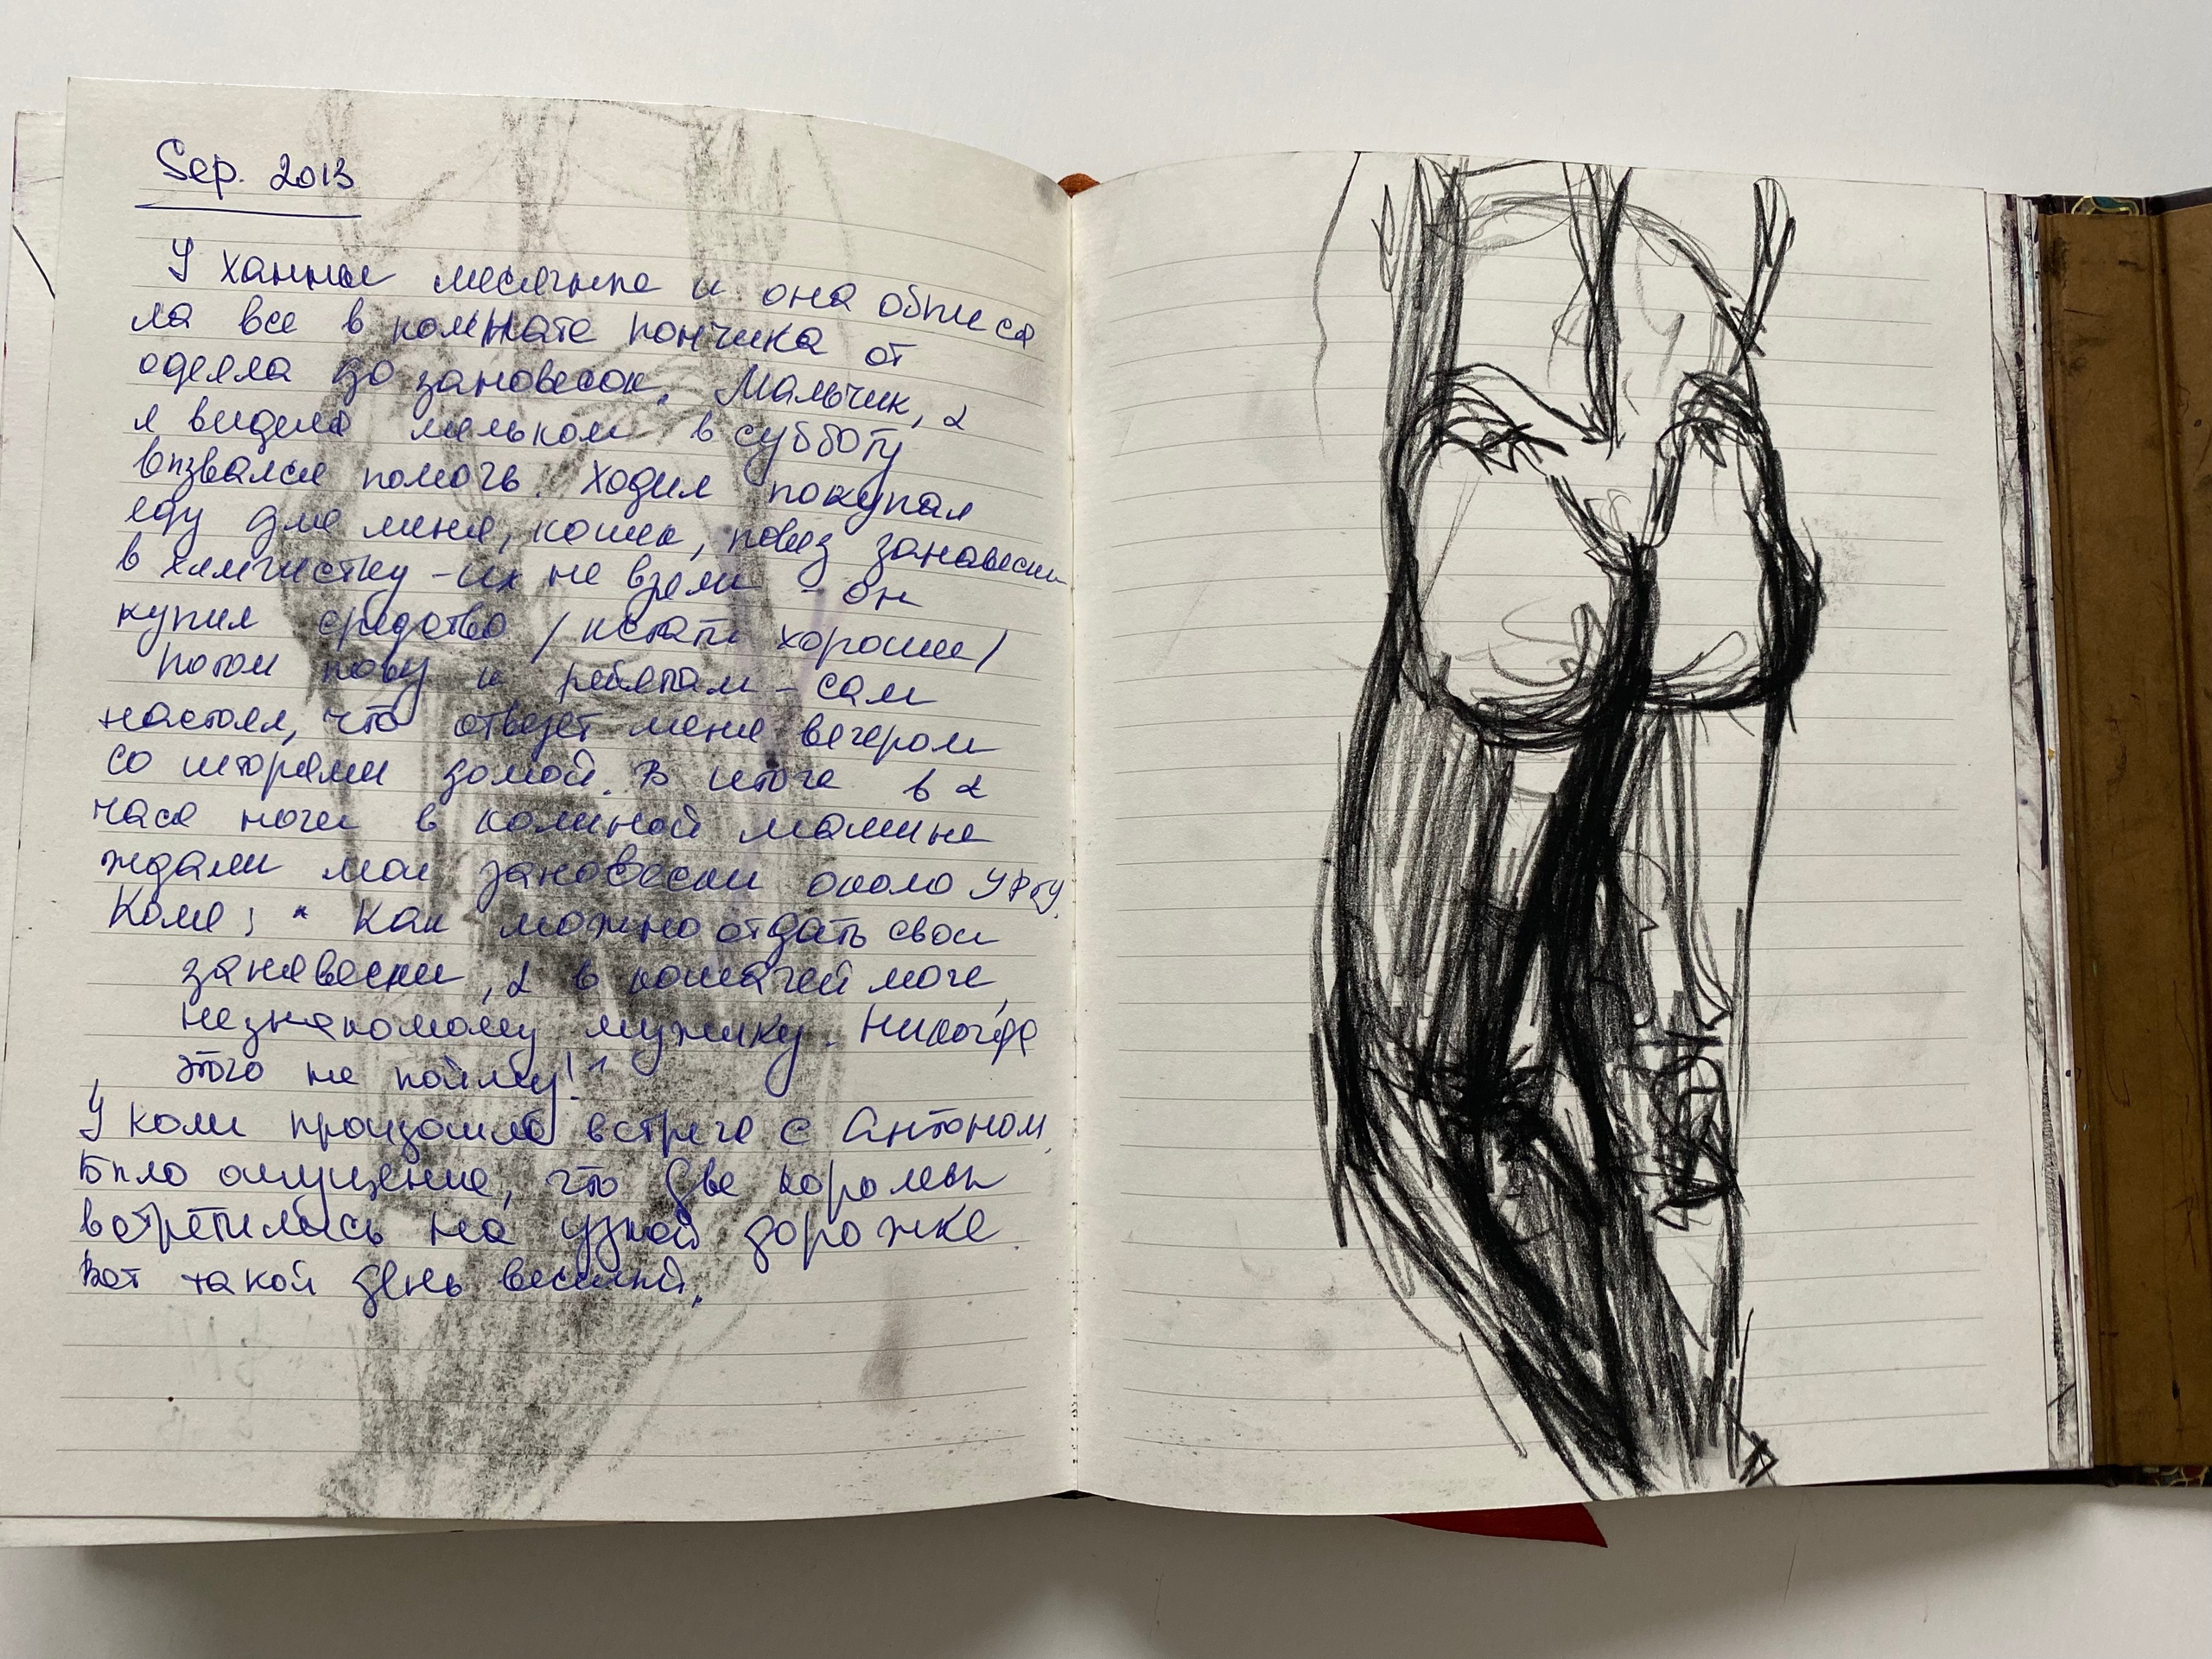 Sep. 2013
У ханны месячные и она обписа
ла все в комнате пончика от
одеяла до зановесок. Мальчик, 2
я видела мельком в субботу
вызвался помочь. Ходил покупал
еду для меня, кошек, повез занавески
в химчистку - их не взяли - он
купил средство / кстати хорошее /
Потом повез и ребятам - сам
настоял, что отвезет меня вечером
со шторами домой. В итоге в 2
часа ночи в колиной машине
ждали мои зановески около
Коля: " Как можно отдать свои
занавески, 2 в кошачей моче,
незнакомому мужику. Никогда
этого не пойму! "
У коли произошла встреча с Антоном.
Было ощущение, что две королевы
встретились на узкой дорожке
Вот такой день веселый.